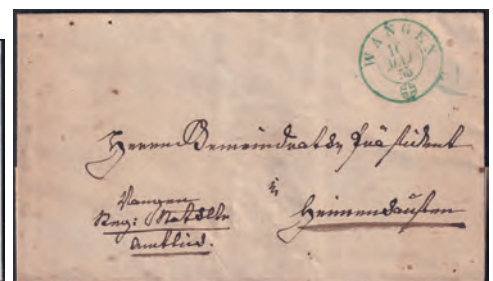 WANGEN
10
MAI
55
Herrn Gemeindraths Präsident
in
Heimenhausen
Wangen
Reg: Statthltr
Amtlich.